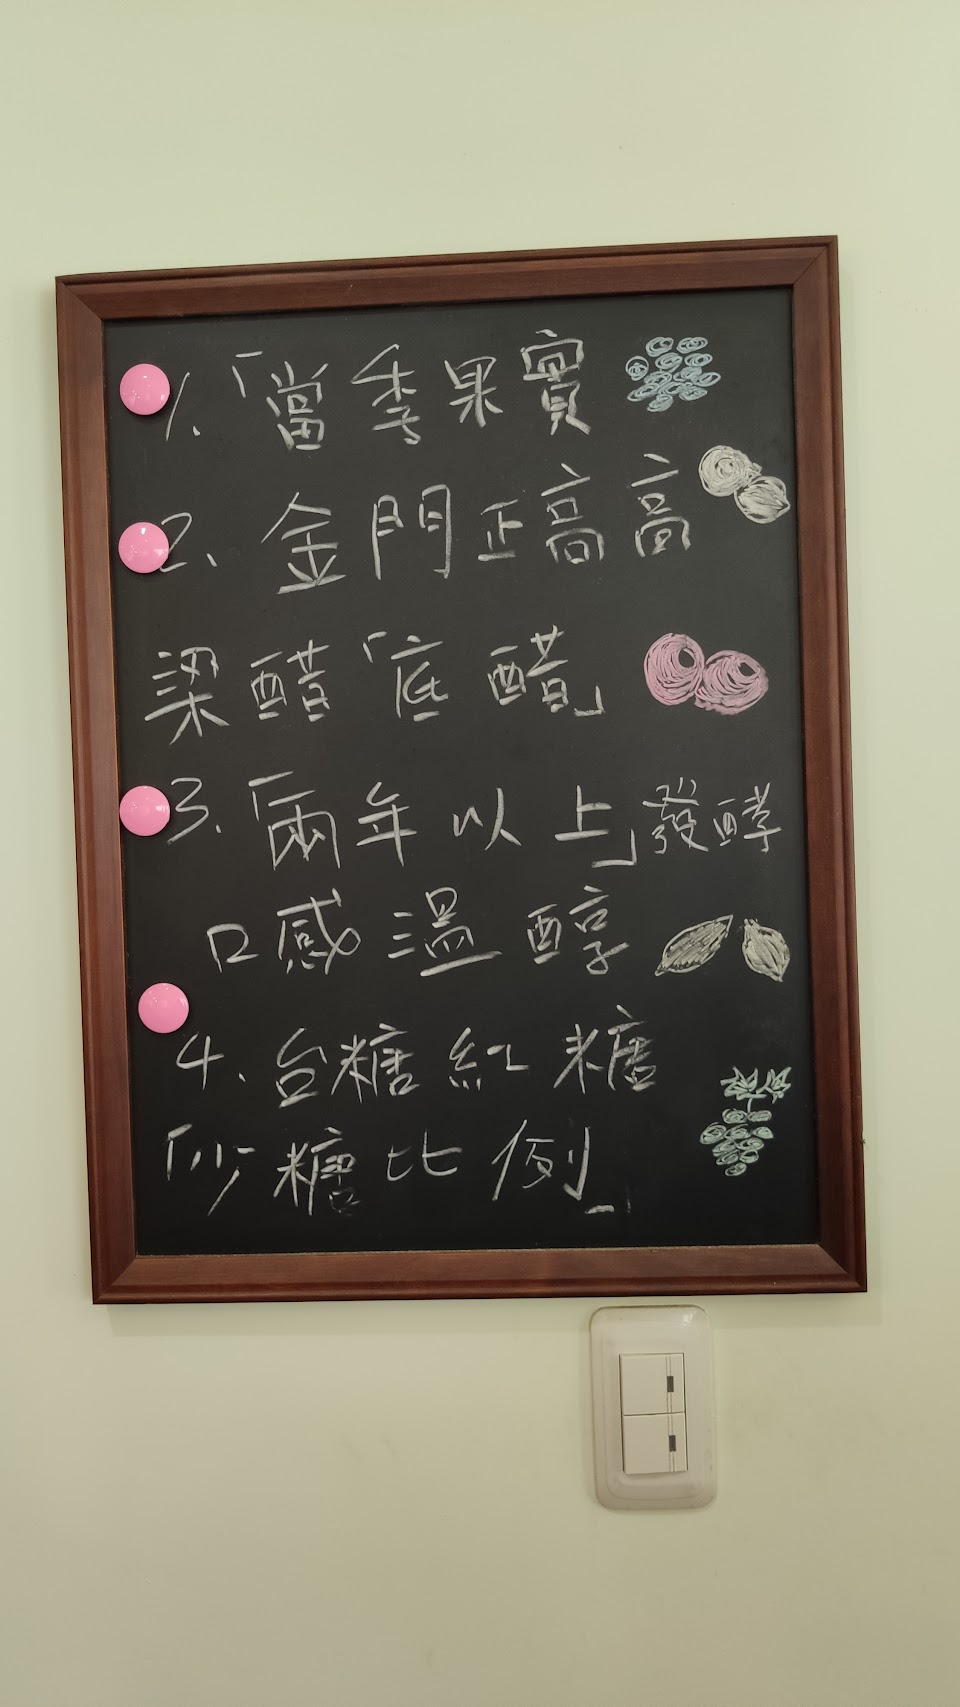 1.「當季果實
2. 金門正高高
梁醋「底醋」
3.「兩年以上」發酵
口感溫醇
4. 台糖紅糖
「少糖比例」